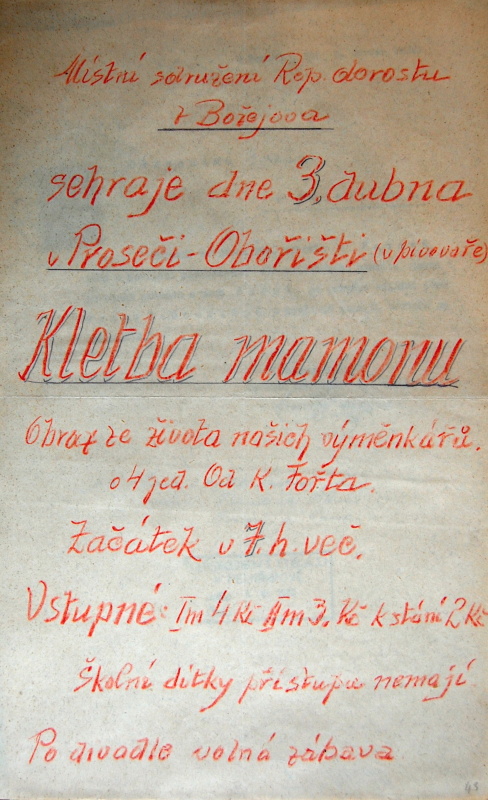 Místní sdružení Rep. dorostu
z Božejova
sehraje dne 3. dubna
v Proseči-Obořišti (v pivovaře)
Kletba mamonu
Obraz ze života našich výměnkářů.
o 4 jed. Od K. Fořta.
Začátek v 7. h. več.
Vstupné: Im 4 Kč IIm 3. Kč k stání 2 Kč
Školní dítky přístupu nemají
Po divadle volná zábava
45